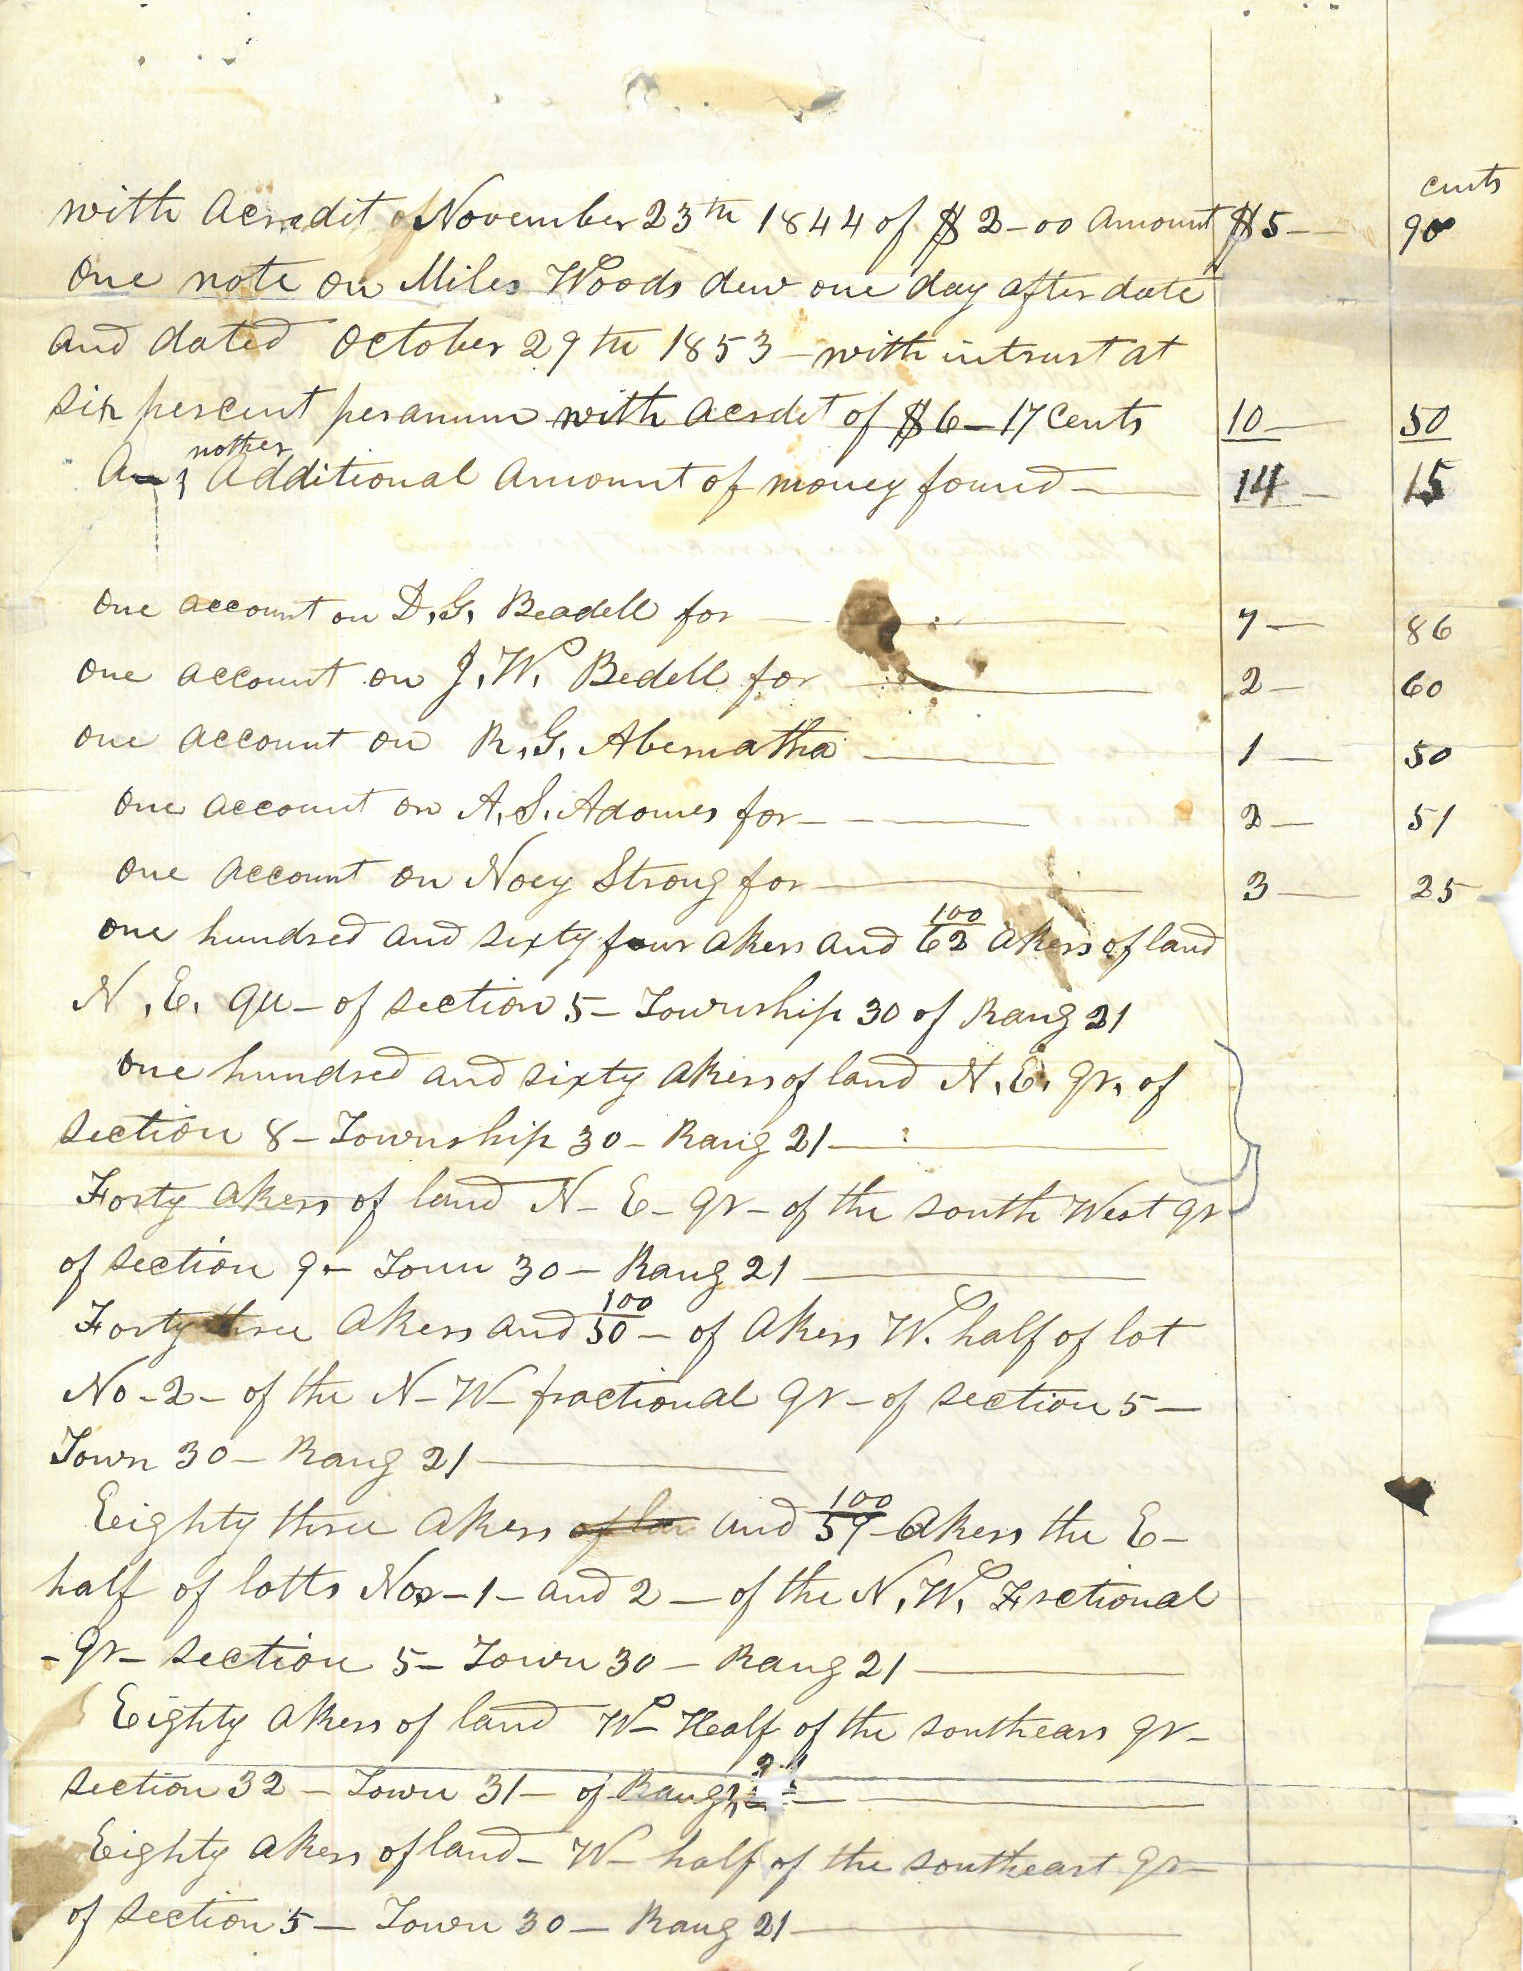 cents
with Acredit of November 23th 1844 of $2-00 Amount $5 — 90
One note on Miles Woods dew one day after date
and dated October 29th 1853 – with intrust at
six percent peranum with acrdit of $6–17 Cents 10 — 50
nother
An Additional Amount of money found — 14 — 15
one account on D.G. Beadell for — 7 — 86
one account on J.W. Bedell for — 2 — 60
one account on R.G. Abernatha — 1 — 50
one account on A.S. Adomes for — 2 — 51
one account on Noey Strong for — 3 — 25
one hundred and sixty four akers and 100/62 akers of land
N.E. qu – of section 5 – Township 30 of Rang 21
one hundred and sixty akers of land N.E. qr. of
section 8 – Township 30 – Rang 21 —
Forty akers of land N – E – qr – of the south West qr
of section 9 – Town 30 – Rang 21 —
Forty three akers and 100/50 – of akers W. half of lot
No – 2 – of the N – W – fractional qr – of section 5 –
Town 30 – Rang 21 —
Eighty three akers of lan and 100/59 – akers the E –
half of lotts Nos – 1 – and 2 – of the N.W. Frctional
– qr – section 5 – Town 30 – Rang 21 —
Eighty akers of land W – Half of the southears qr –
21
section 32 – Town 31 – of Rang —
Eighty akers of land – W – half of the southeast qr –
of section 5 – Town 30 – Rang 21 —